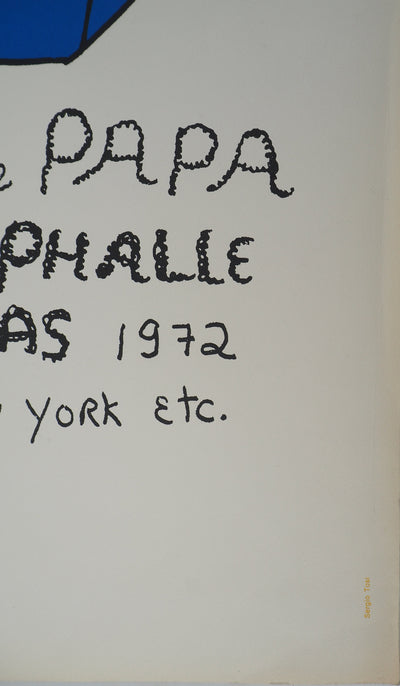 PAPA
PHALLE
AS 1972
YORK Etc.
Sergio Tosi